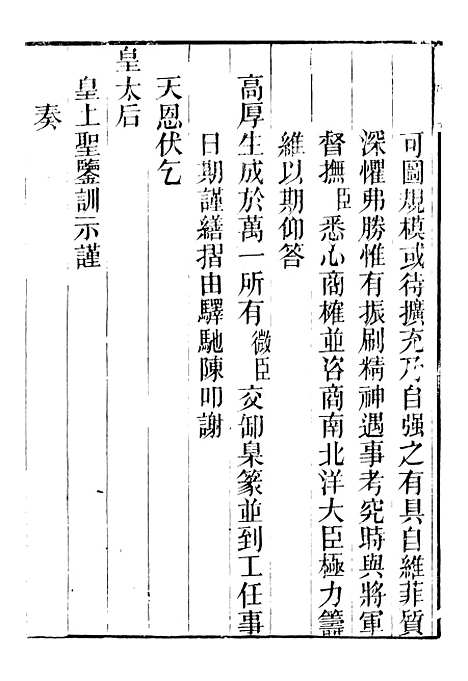 可圖規模或待擴充乃自强之有具自維菲質
深懼弗勝惟有振刷精神遇事考究時與將軍
督撫臣悉心商榷並咨商南北洋大臣極力籌
維以期仰答
高厚生成於萬一所有微臣交卸臬篆並到工任事
日期謹繕摺由驛馳陳叩謝
天恩伏乞
皇太后
皇上聖鑒訓示謹
奏